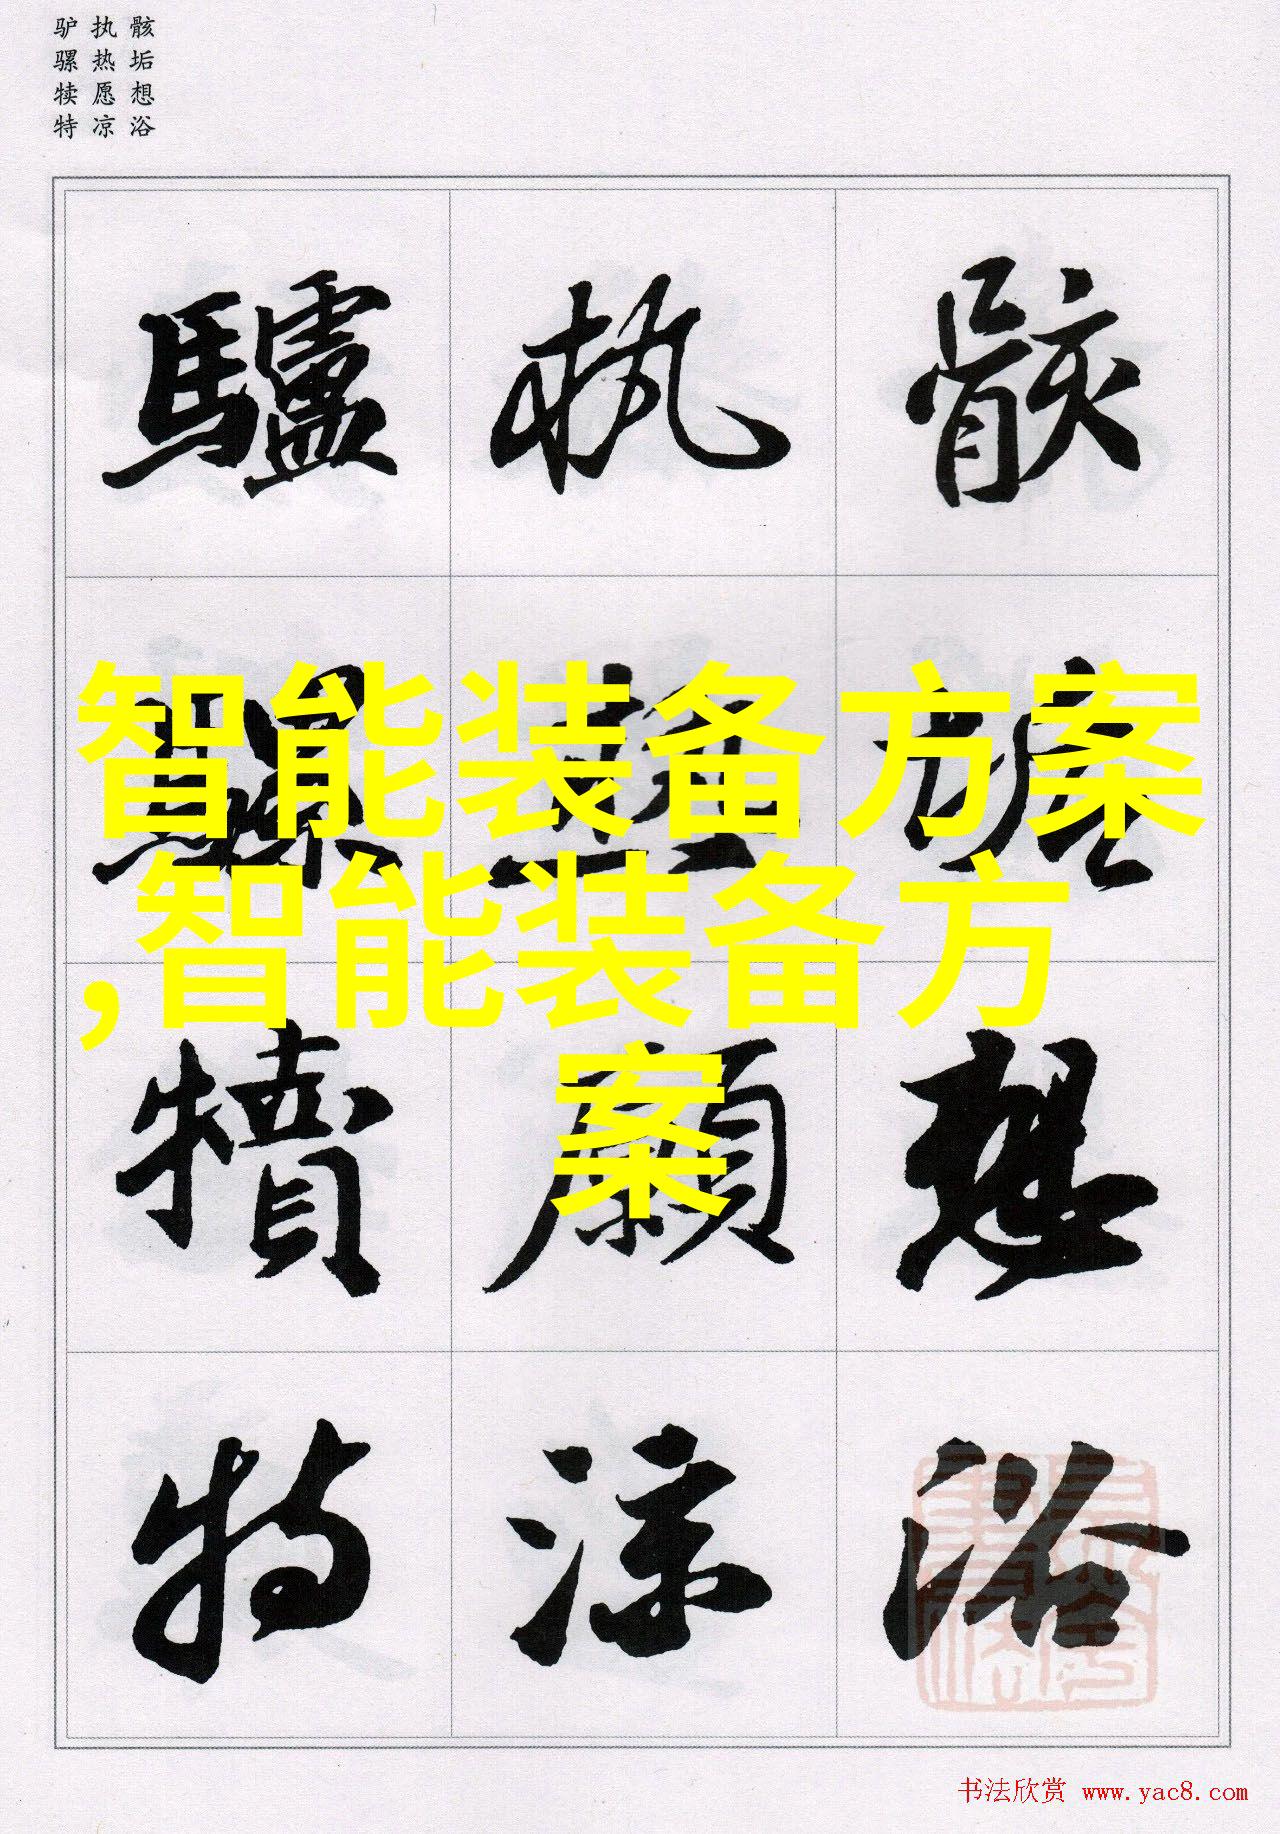 骸垢想浴
执热愿凉
驴骡犊特
骸垢想浴
执熱願涼
驢騾犢特
智能装备方案
,智能装备方
案
书法欣赏 www.yac8.com